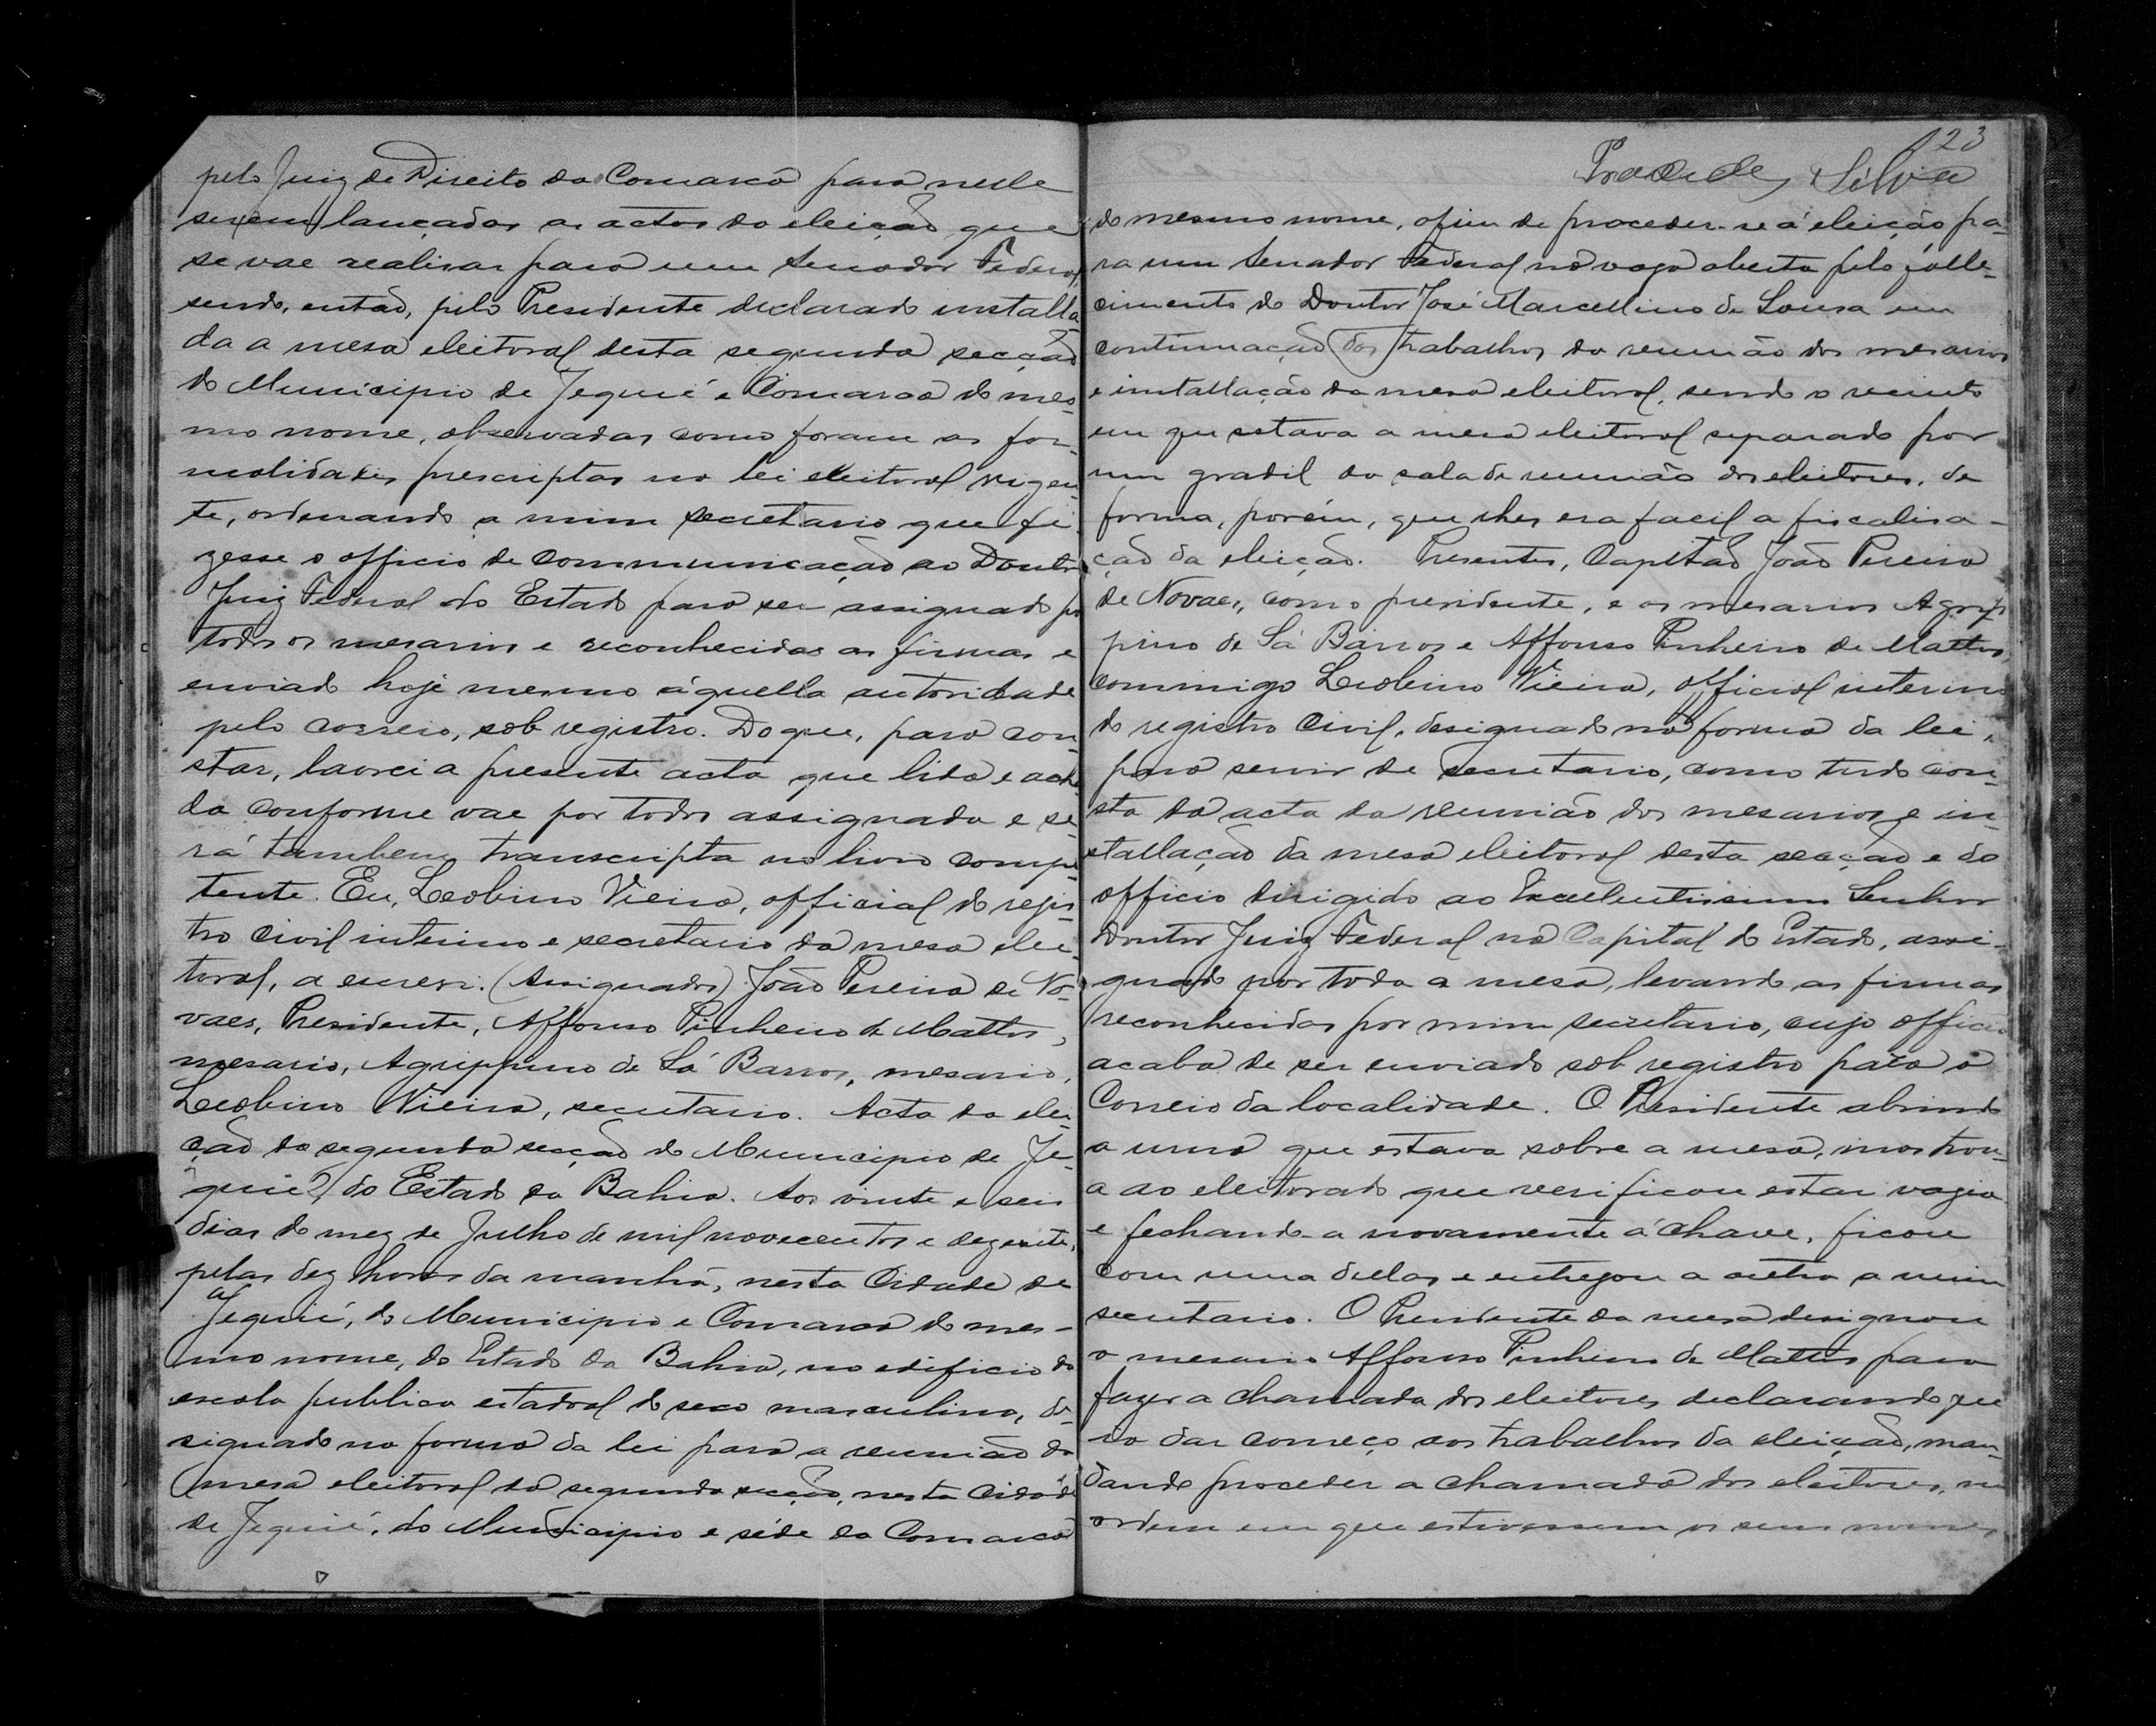 pelo Juiz de Direito da Comarca para nelle
serem lançadas as actas da eleição que
se vae realisar para um Senador Federal,
sendo, então, pelo Presidente declarado installa
da a mesa eleitoral desta segunda secção
do Municipio de Jequié e Comarca do mes-
mo nome, observadas como foram as for-
malidades prescriptas na lei eleitoral vigen-
te, ordenando a mim secretario que fi-
zesse o officio de communicação ao Doutor
Juiz Federal do Estado para ser assignado por
todos os mesarios e reconhecidas as firmas e
enviado hoje mesmo áquella autoridade
pelo correio, sob registro. Do que, para con-
star, lavrei a presente acta que lida e acha-
da conforme vae por todos assignada e se-
rá tambem transcripta no livro compe-
tente. Eu, Leobino Vieira, official do regis-
tro civil interino e secretario da mesa elei-
toral, a escrevi. (Assignados) João Pereira de No-
vaes, Presidente, Affonso Pinheiro de Mattos,
mesario, Agrippino de Sá Barros, mesario,
Leobino Vieira, secretario. Acta da elei-
ção da segunda secção do Municipio de Je-
quié, do Estado da Bahia. Aos vinte e seis
dias do mez de Julho de mil novecentos e dezesete,
pelas dez horas da manhã, nesta Cidade de
Jequié, do Municipio e Comarca do mes-
mo nome, do Estado da Bahia, no edificio da
escola publica estadoal do sexo masculino, de-
signado na forma da lei para a reunião da
mesa eleitoral da segunda secção, nesta Cidade
de Jequié, do Municipio e séde da Comarca
123
Silva
do mesmo nome, afim de proceder-se á eleição pa-
ra um Senador Federal na vaga aberta pelo falle-
cimento do Doutor José Marcellino de Sousa em
continuação dos trabalhos da reunião dos mesarios
e installação da mesa eleitoral, sendo o recinto
em que estava a mesa eleitoral separado por
um gradil da sala de reunião dos eleitores, de
forma, porém, que lhes era facil a fiscalisa-
ção da eleição. Presentes, Capitão João Pereira
de Novaes, como presidente, e os mesarios Agrip
pino de Sá Barros e Affonso Pinheiro de Mattos,
commigo Leobino Vieira, official interino
do registro Civil, designado na forma da lei,
para servir de secretario, como tudo con-
sta da acta da reunião dos mesarios e in-
stallação da mesa eleitoral desta secção e do
officio dirigido ao Excellentissimo Senhor
Doutor Juiz Federal na Capital do Estado, assi-
gnado por toda a mesa, levando as firmas
reconhecidas por mim secretario, cujo officio
acaba de ser enviado sob registro para o
Correio da localidade. O Presidente abrindo
a urna que estava sobre a mesa, mostrou-
a ao eleitorado que verificou estar vazia
e fechando-a novamente á chave, ficou
com uma dellas e entregou a outra a mim
secretario. O Presidente da mesa designou
o mesario Affonso Pinheiro de Mattos para
fazer a chamada dos eleitores declarando que
ia dar começo aos trabalhos da eleição, man-
dando proceder a chamada dos eleitores, na
ordem em que estivessem os seus nomes